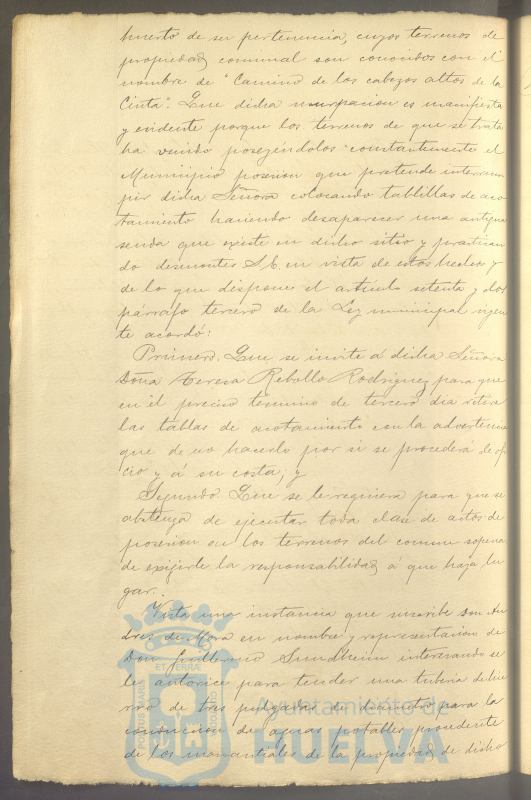 huerto de su pertenencia, cuyos terrenos de
propiedad comunal son conocidos con el
nombre de "Camino de los cabezos altos de la
Cinta". Que dicha usurpacion es manifiesta
y evidente porque los terrenos de que se trata
ha venido poseyéndolos constantemente el
Municipio posesion que pretende interrum
pir dicha Señora colocando tablillas de aco
tamiento haciendo desaparecer una antigua
senda que existe en dicho sitio y practican
do desmontes S.E. en vista de estos hechos y
de lo que dispone el artículo setenta y dos
párrafo tercero de la Ley municipal vigen
te acordó:
Primero. Que se invite á dicha Señora
Doña Teresa Rebollo Rodriguez para que
en el preciso término de tercero dia retire
las tablas de acotamiento con la advertencia
que de no hacerlo por si se procederá de ofi
cio y á su costa; y
Segundo Que se le requiera para que se
abstenga de ejecutar toda clase de actos de
posesion en los terrenos del comun so pena
de exigirle la responsabilidad á que haya lu
gar.
Vista una instancia que suscribe Don An
dres de Mora en nombre y representacion de
Don Guillermo Sundheim interesando se
le autorice para tender una tuberia de hie
rro de tres pulgadas de diametro para la
conduccion de aguas potables procedente
de los manantiales de la propiedad de dicho
PORTUS MARIS
ET TERRÆ
CUSTODIO
Ayuntamiento de
HUELVA